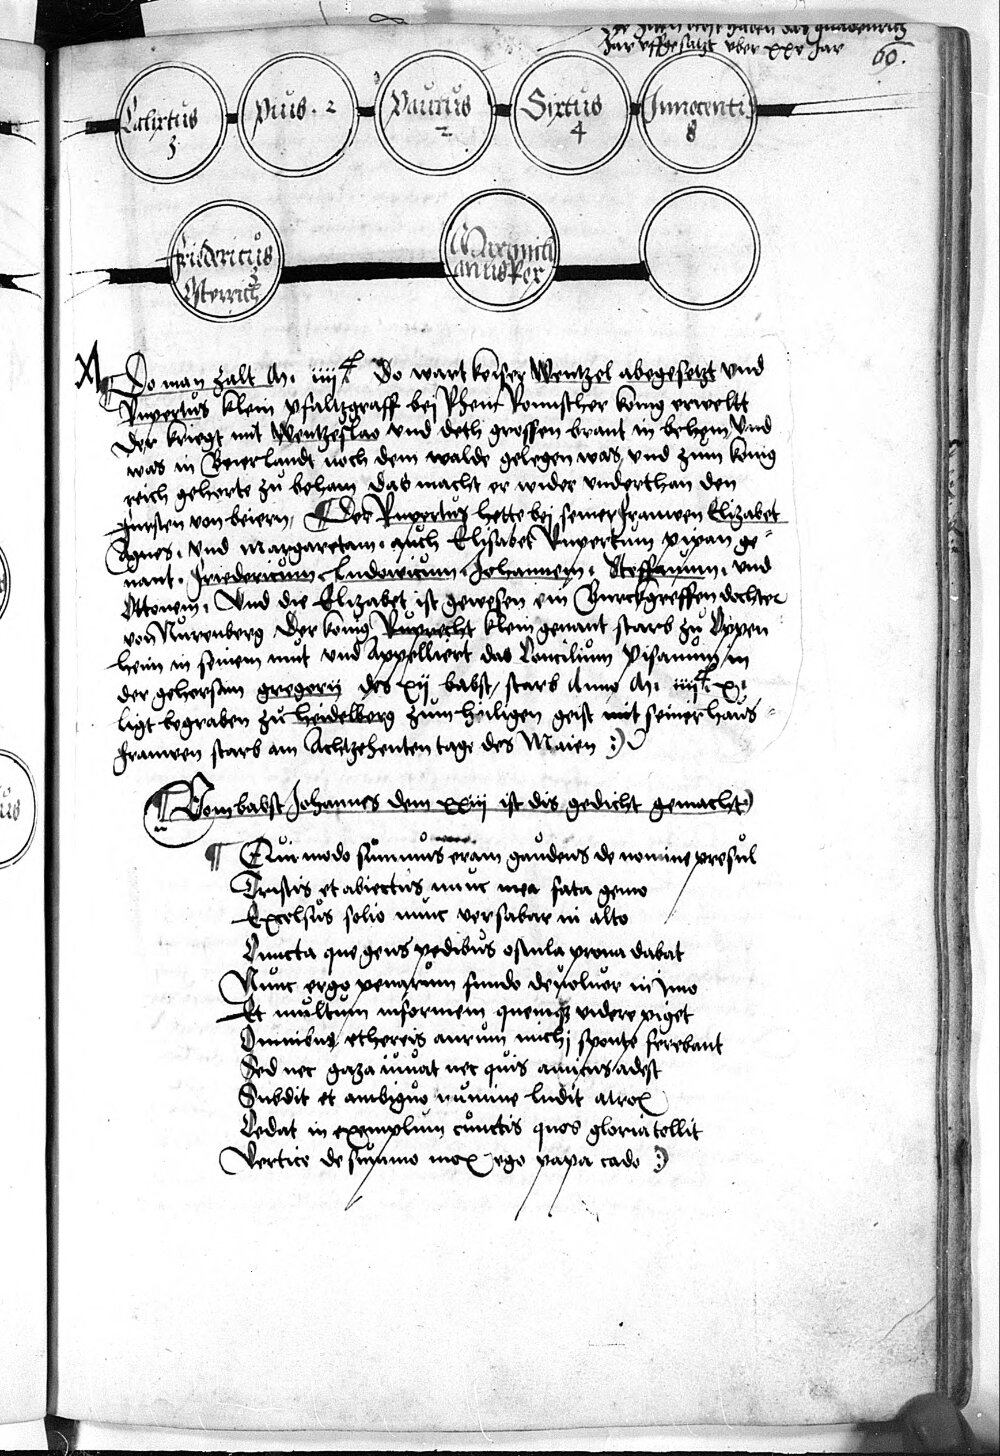 Jar uffgesatzt uber xxv Jar
69.
Calixtus 3
Pius . 2
Paulus 2
Sixtus 4
Innocenti 8
Fridericus 3 Osterrich
Maximili anus Rex
Do man zalt M. iiiic Do wart keiser Wentzel abegesetzt und
Rupertus klein pfaltzgraff bei Rhein Romischer konig erweltt
Der kriegt mit Wentzeslao und deth grossen brant in behem und
was in Beierlandt noch dem walde gelegen was und zum konig
reich gehorte zu beham das macht er wider underthan den
fursten von beiern, Der Rupertus hette bei seiner frauwen Elizabet
Agnes. und Margaretam. auch Elisabet Rupertum pipan ge=
nant. Fridericum. Ludowicum. Johannem. Steffanum. und
Ottonem. Und die Elizabet ist gewesen ein Burckgreffen dochter
von Nurenberg Der konig Ruprecht klein genant starb zu Oppen
heim in seinem mut und Appelliert das Concilium Pisanum in
der gehorsam gregorij des xij babst, starb Anno M. iiiic. x.
ligt begraben zu heidelberg zum heiligen geist mit seiner haus=
frauwen starb am Achtzehenten tage des Maien
Vom babst Johannes dem xxiij ist dis gedicht gemacht
Qui modo summus eram gaudens de nomine presul
Tristis et abiectus nunc mea fata gemo
Excelsus solio nunc versabar in alto
Cuncta que gens pedibus oscula prona dabat
Nunc ergo penarum fundo devoluor in imo
Et multum informem quemque videre piget
Omnibus et hereis aurum michi sponte ferebant
Sed nec gaza iuuat nec quis amicus adest
Subdit et ambiguo numine ludit atrox
Cedat in exemplum cunctis quos gloria tollit
Vertice de summo mox ego papa cado